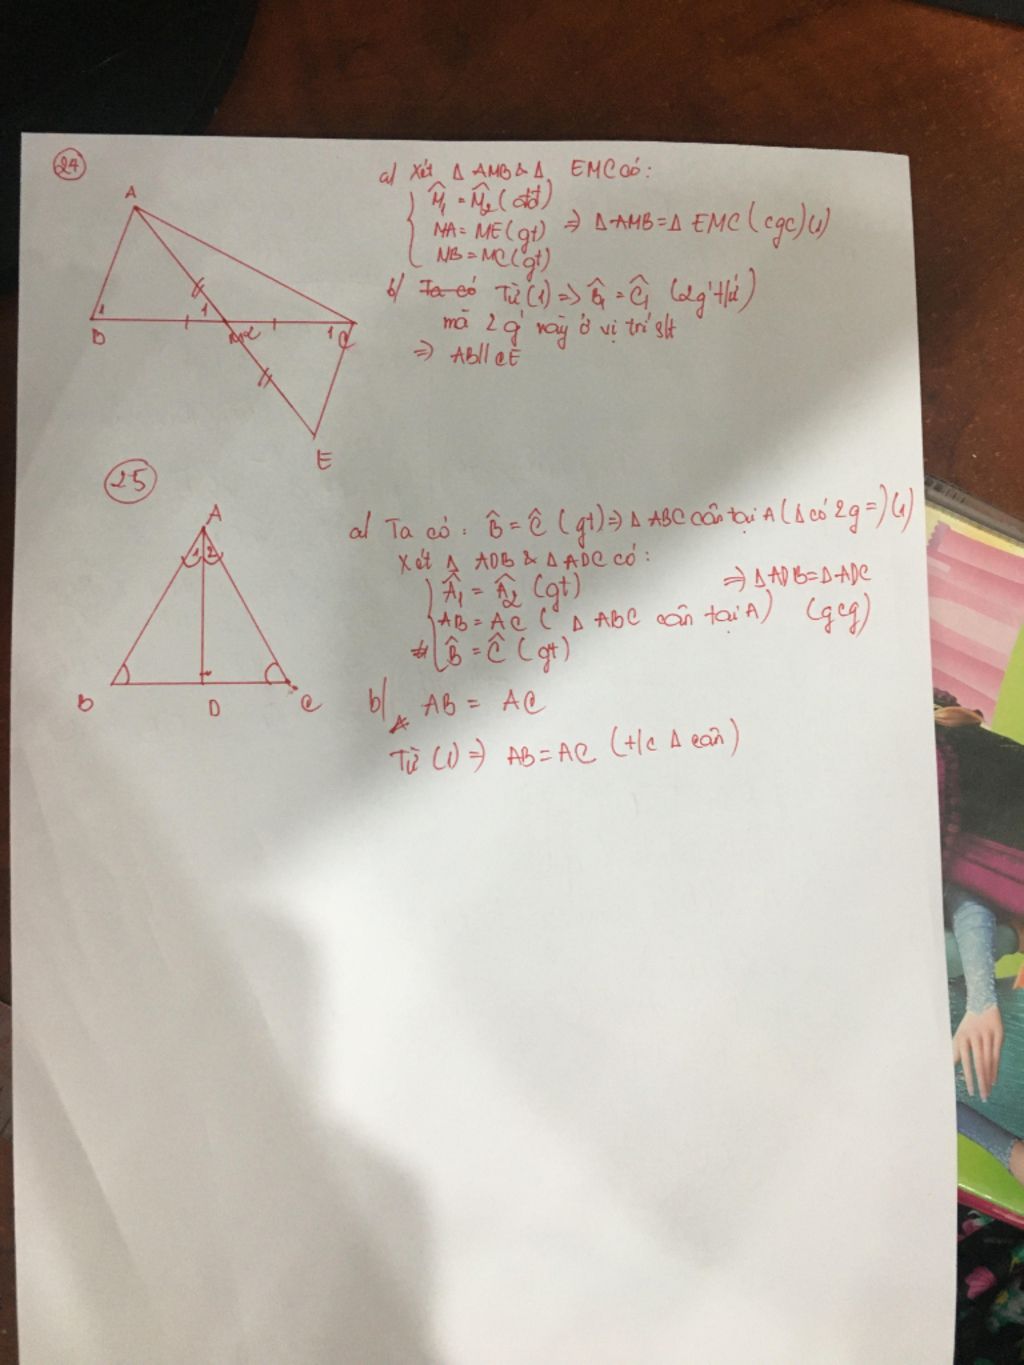 24
A
B
1
1
M
2
1
C
E
a/ Xét Δ AMB & Δ EMC có:
M̂₁ = M̂₂ (đđ)
MA = ME (gt) => Δ AMB = Δ EMC (cgc) (1)
MB = MC (gt)
b/ Ta có Từ (1) => B̂₁ = Ĉ₁ (2g' t/ư)
mà 2 g' này ở vị trí slt
=> AB // CE
25
A
1 2
B
D
C
a/ Ta có: B̂ = Ĉ (gt) => Δ ABC cân tại A (Δ có 2g =) (1)
Xét Δ ADB & Δ ADC có:
Â₁ = Â₂ (gt) => Δ ADB = Δ ADC
AB = AC (Δ ABC cân tại A) (gcg)
B̂ = Ĉ (gt)
b/ AB = AC
Từ (1) => AB = AC (t/c Δ cân)